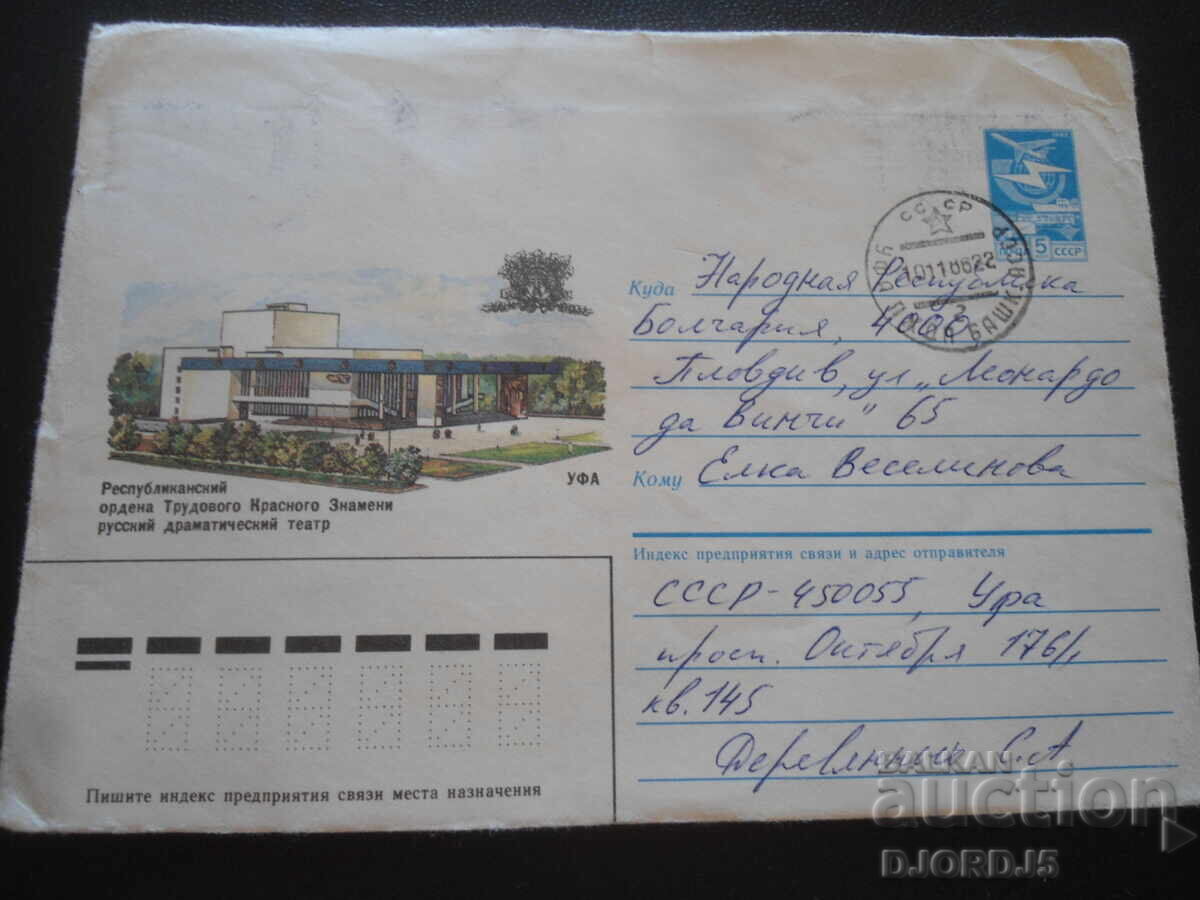 1982
ПОЧТА
5 СССР
СССР
УФА
10110622
ПЖДП БАШКАССР
Куда Народная Республика
Болгария, 4000
Пловдив, ул „Леонардо
да Винчи" 65
Кому Елка Веселинова
Республиканский
ордена Трудового Красного Знамени
русский драматический театр
УФА
Индекс предприятия связи и адрес отправителя
СССР-450055, Уфа
просп. Октября 176/1
кв. 145
С. А
Пишите индекс предприятия связи места назначения
BALKAN
auction
DJORDJ5